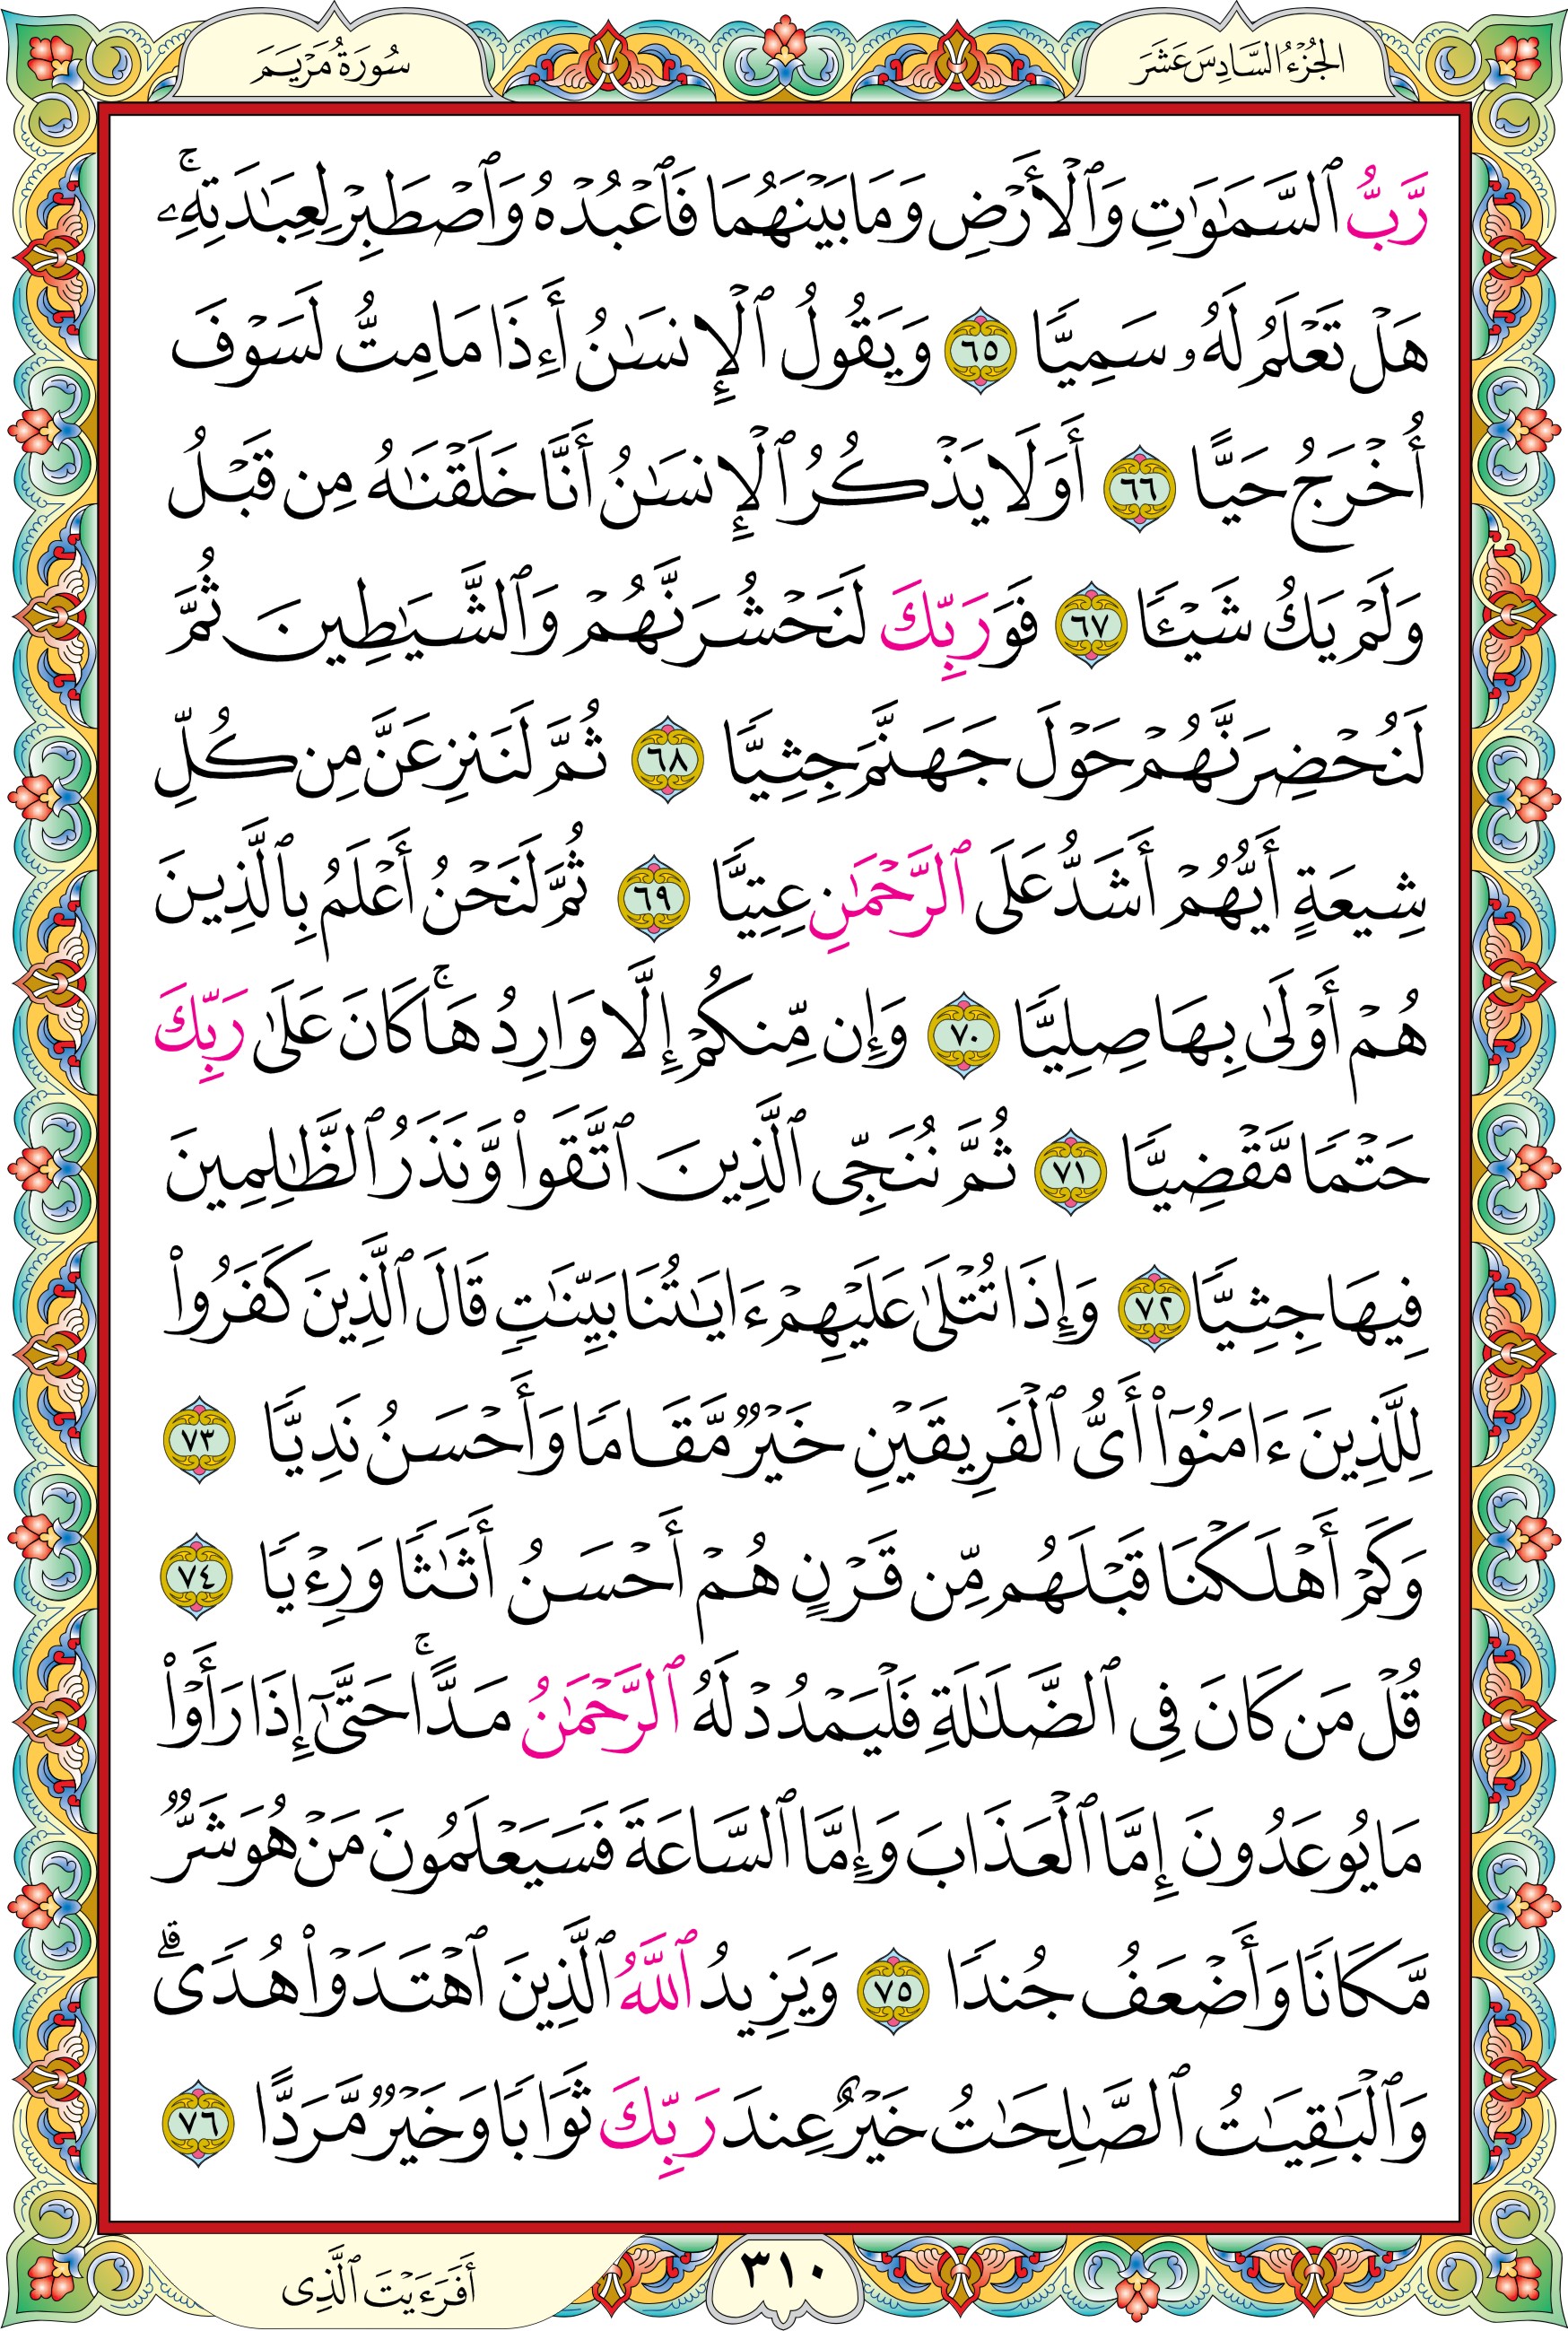 الجُزْءُ السَّادِسَ عَشَرَ
سُورَةُ مَرْيَمَ
رَّبُّ ٱلسَّمَٰوَٰتِ وَٱلْأَرْضِ وَمَا بَيْنَهُمَا فَٱعْبُدْهُ وَٱصْطَبِرْ لِعِبَٰدَتِهِۦۚ
هَلْ تَعْلَمُ لَهُۥ سَمِيًّا ٦٥ وَيَقُولُ ٱلْإِنسَٰنُ أَءِذَا مَا مِتُّ لَسَوْفَ
أُخْرَجُ حَيًّا ٦٦ أَوَلَا يَذْكُرُ ٱلْإِنسَٰنُ أَنَّا خَلَقْنَٰهُ مِن قَبْلُ
وَلَمْ يَكُ شَيْـًٔا ٦٧ فَوَرَبِّكَ لَنَحْشُرَنَّهُمْ وَٱلشَّيَٰطِينَ ثُمَّ
لَنُحْضِرَنَّهُمْ حَوْلَ جَهَنَّمَ جِثِيًّا ٦٨ ثُمَّ لَنَنزِعَنَّ مِن كُلِّ
شِيعَةٍ أَيُّهُمْ أَشَدُّ عَلَى ٱلرَّحْمَٰنِ عِتِيًّا ٦٩ ثُمَّ لَنَحْنُ أَعْلَمُ بِٱلَّذِينَ
هُمْ أَوْلَىٰ بِهَا صِلِيًّا ٧٠ وَإِن مِّنكُمْ إِلَّا وَارِدُهَاۚ كَانَ عَلَىٰ رَبِّكَ
حَتْمًا مَّقْضِيًّا ٧١ ثُمَّ نُنَجِّى ٱلَّذِينَ ٱتَّقَوا۟ وَّنَذَرُ ٱلظَّٰلِمِينَ
فِيهَا جِثِيًّا ٧٢ وَإِذَا تُتْلَىٰ عَلَيْهِمْ ءَايَٰتُنَا بَيِّنَٰتٍ قَالَ ٱلَّذِينَ كَفَرُوا۟
لِلَّذِينَ ءَامَنُوٓا۟ أَىُّ ٱلْفَرِيقَيْنِ خَيْرٌ مَّقَامًا وَأَحْسَنُ نَدِيًّا ٧٣
وَكَمْ أَهْلَكْنَا قَبْلَهُم مِّن قَرْنٍ هُمْ أَحْسَنُ أَثَٰثًا وَرِءْيًا ٧٤
قُلْ مَن كَانَ فِى ٱلضَّلَٰلَةِ فَلْيَمْدُدْ لَهُ ٱلرَّحْمَٰنُ مَدًّاۚ حَتَّىٰٓ إِذَا رَأَوْا۟
مَا يُوعَدُونَ إِمَّا ٱلْعَذَابَ وَإِمَّا ٱلسَّاعَةَ فَسَيَعْلَمُونَ مَنْ هُوَ شَرٌّ
مَّكَانًا وَأَضْعَفُ جُندًا ٧٥ وَيَزِيدُ ٱللَّهُ ٱلَّذِينَ ٱهْتَدَوْا۟ هُدًىۗ
وَٱلْبَٰقِيَٰتُ ٱلصَّٰلِحَٰتُ خَيْرٌ عِندَ رَبِّكَ ثَوَابًا وَخَيْرٌ مَّرَدًّا ٧٦
٣١٠
أَفَرَءَيْتَ ٱلَّذِى